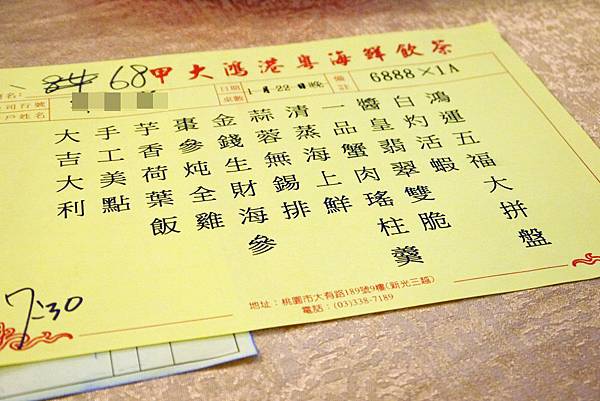 68
甲大鴻港粵海鮮飲茶
名:
司行號
戶姓名
日期
桌數
1月22日晚
備註
6888×1A
鴻運五福大拼盤
白灼活蝦
醬皇翡翠雙脆
一品蟹肉瑤柱羹
清蒸海上鮮
蒜蓉無錫排
金錢生財海參
棗參炖全雞
芋香荷葉飯
手工美點
大吉大利
7:30
地址：桃園市大有路189號9樓(新光三越)
電話：(03)338-7189